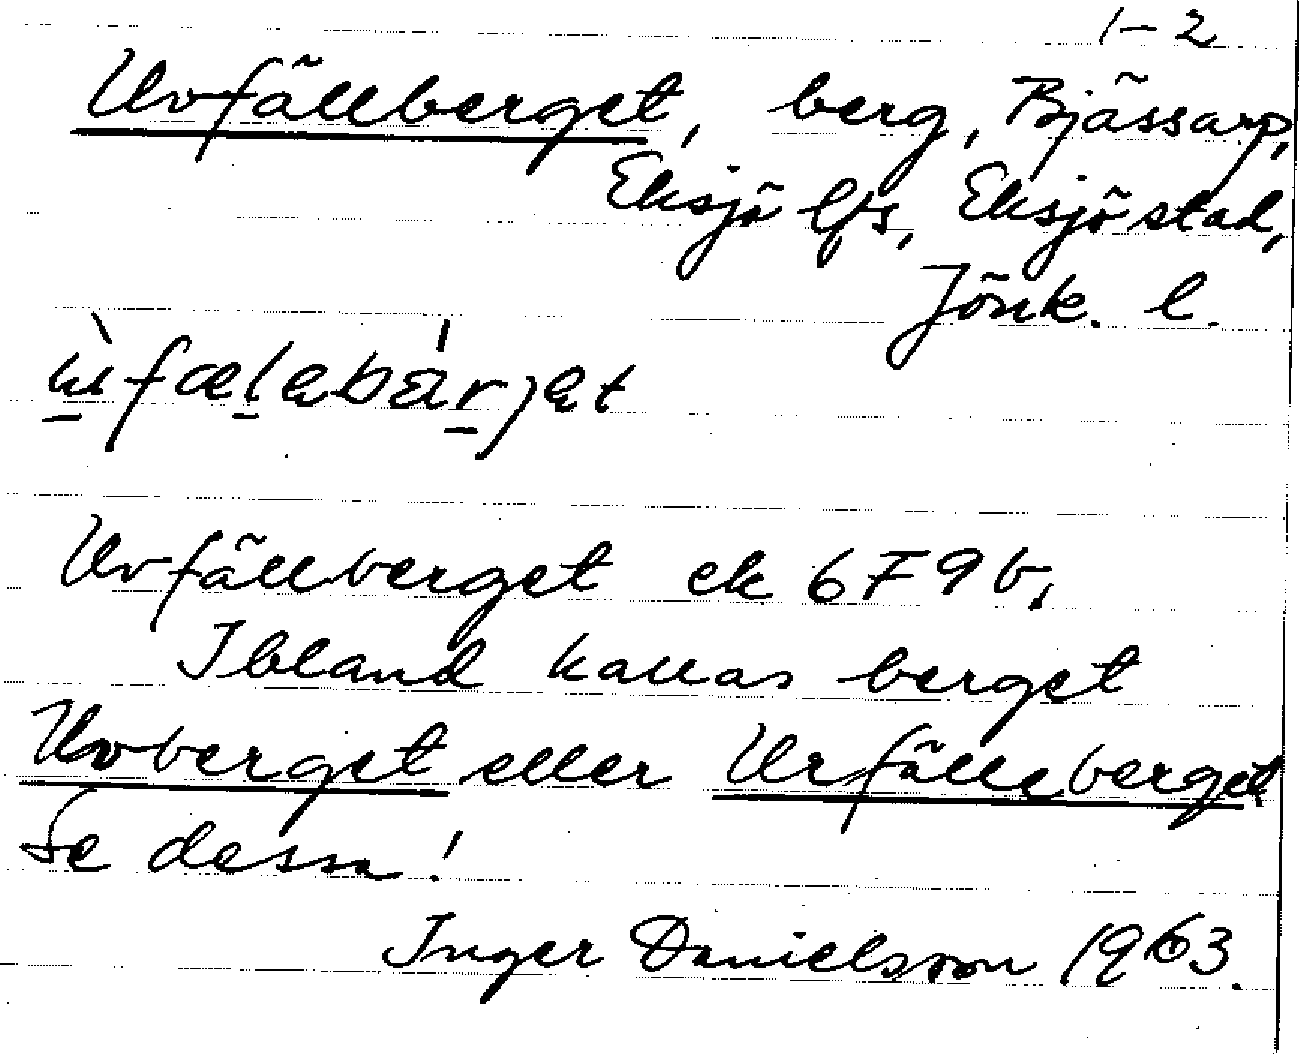 1-2
Uvfällberget, berg, Bjässarp,
Eksjö lfs, Eksjö stad,
Jönk. l.
Uvfällberget ek 6F9b.
Ibland kallas berget
Uvberget eller Urfälleberget
Se dessa!
Inger Danielsson 1963.